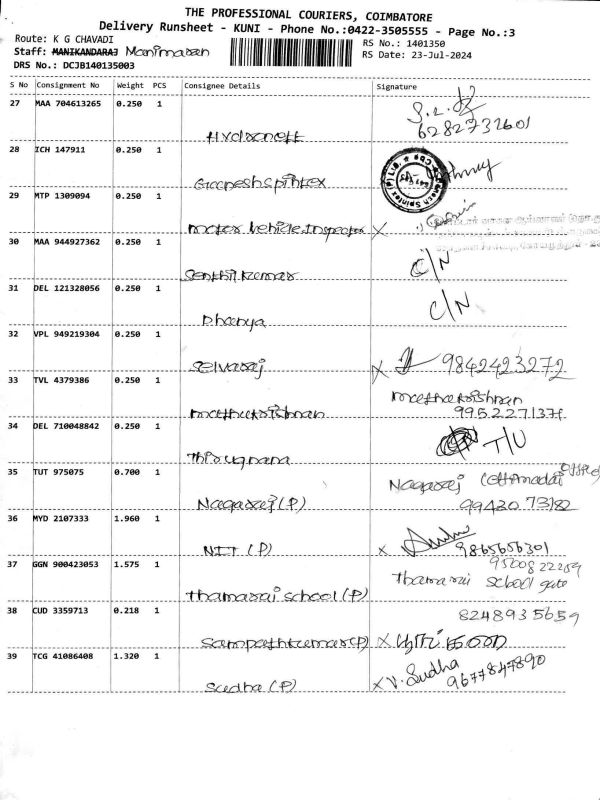 THE PROFESSIONAL COURIERS, COIMBATORE
Delivery Runsheet - KUNI - Phone No.:0422-3505555 - Page No.:3
Route: K G CHAVADI
RS No.: 1401350
Staff: MANIKANDARAJ Manimaran
RS Date: 23-Jul-2024
DRS No.: DCJB140135003
S No Consignment No Weight PCS Consignee Details Signature
27 MAA 704613265 0.250 1
6282732601
28 ICH 147911 0.250 1
Ganesh Spintex
29 MTP 1309094 0.250 1
Motor Vehicle Inspector X
30 MAA 944927362 0.250 1
C/N
Senthil kumar
31 DEL 121328056 0.250 1
C/N
Dhanya
32 VPL 949219304 0.250 1
Selvaraj X 9842423272
33 TVL 4379386 0.250 1
Muthukrishnan
Muthukrishnan 9952271371
34 DEL 710048842 0.250 1
T/U
Thirugnana
35 TUT 975075 0.700 1
Nagaraj
Nagaraj (P) 99430 73182
36 MYD 2107333 1.960 1
NIT (P) X 9865656301
37 GGN 900423053 1.575 1
9500822259
Thamarai School gate
Thamarai school (P)
38 CUD 3359713 0.218 1
8248935659
Sampathkumar (P) X
39 TCG 41086408 1.320 1
Sudha (P) X V. Sudha
9677847890